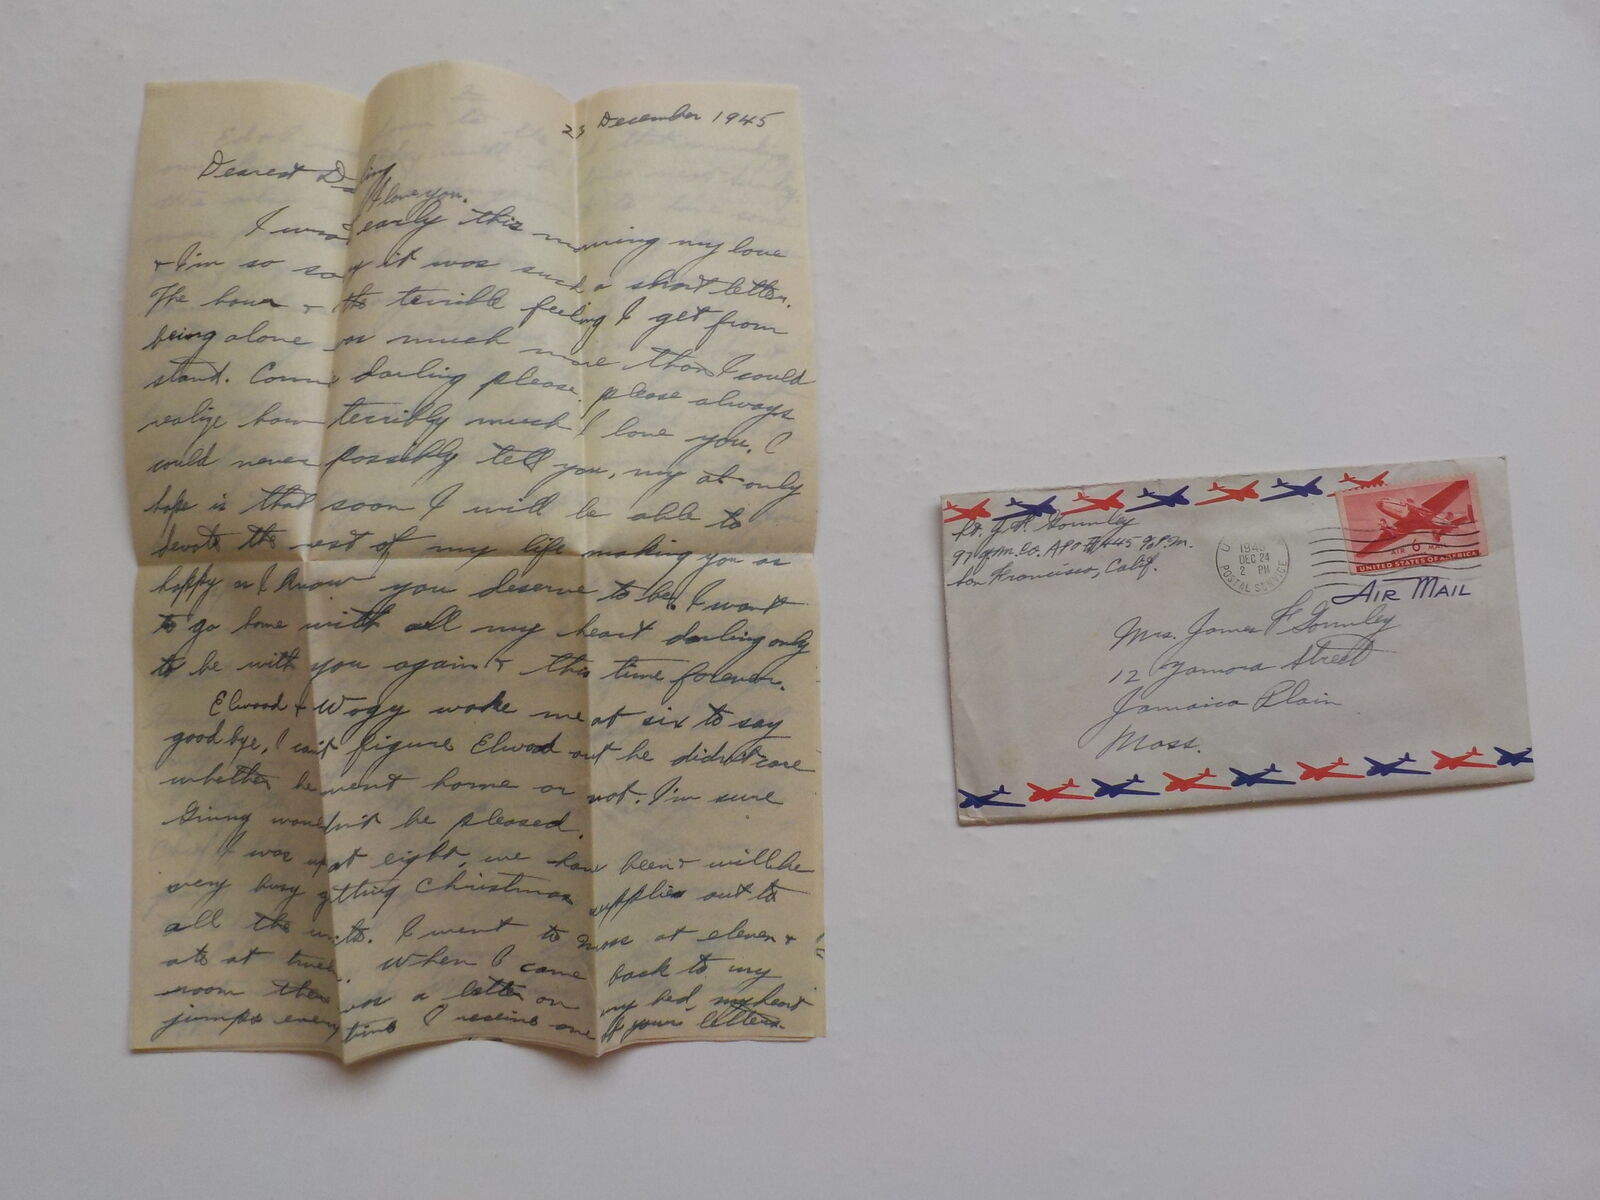 23 December 1945
Dearest Darling
I love you.
I wrote early this morning my love
+ I'm so sorry it was such a short letter.
The hour + the terrible feeling I get from
being alone was much more than I could
stand. Connie darling please, please always
realize how terribly much I love you. I
could never possibly tell you, my only
hope is that soon I will be able to
devote the rest of my life making you as
happy as I know you deserve to be. I want
to go home with all my heart darling only
to be with you again + this time forever.
Elwood + Wogy woke me at six to say
good bye, I can't figure Elwood out he didn't care
whether he went home or not. I'm sure
Ginny wouldn't be pleased.
I was up at eight, we have been + will be
very busy getting Christmas supplies out to
all the units. I went to mass at eleven +
ate at twelve. When I came back to my
room there was a letter on my bed, my heart
jumps every time I receive one of your letters.
Lt. J.F. Gormley
97 Q.M. Co. APO 445 % P.M.
San Francisco, Calif.
1945
DEC 24
2 PM
POSTAL SERVICE
AIR 6¢ MAIL
UNITED STATES OF AMERICA
AIR MAIL
Mrs. James F Gormley
12 Zamora Street
Jamaica Plain
Mass.